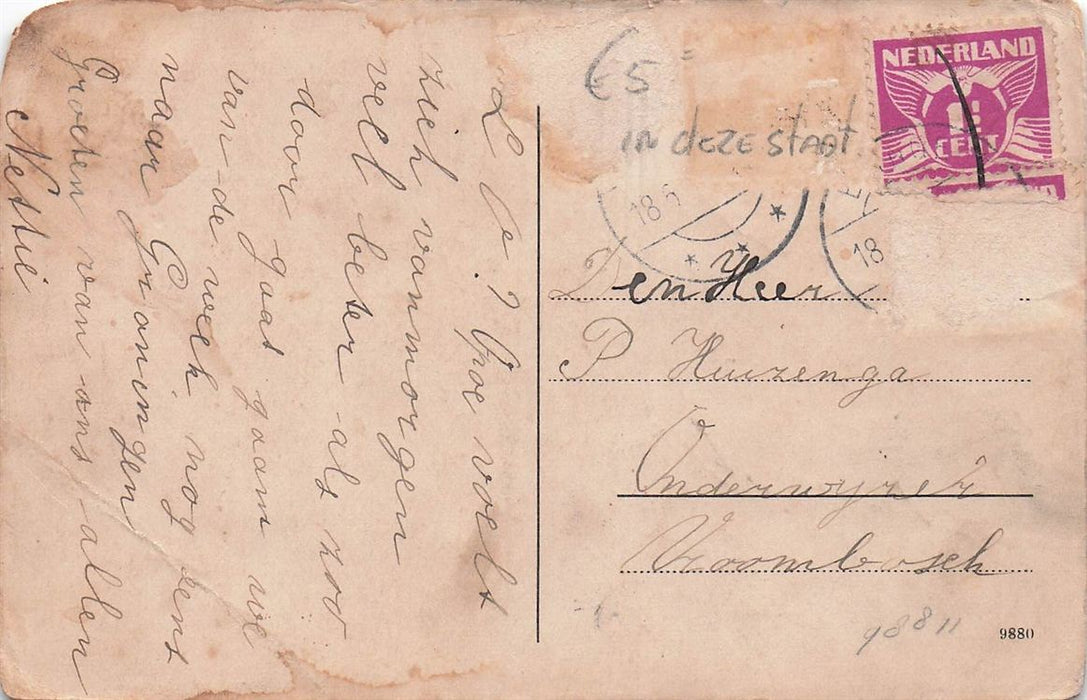 L O? Opoe voelt
zich vanmorgen
veel beter als zoo
door gaat gaan we
van de week nog eens
naar Groningen
Groeten van ons allen
Nettie
€5
IN DEZE STAAT
NEDERLAND
1½
CENT
18
18
Den Heer
P Huizenga
Onderwijzer
Kroombosch
98811
9880